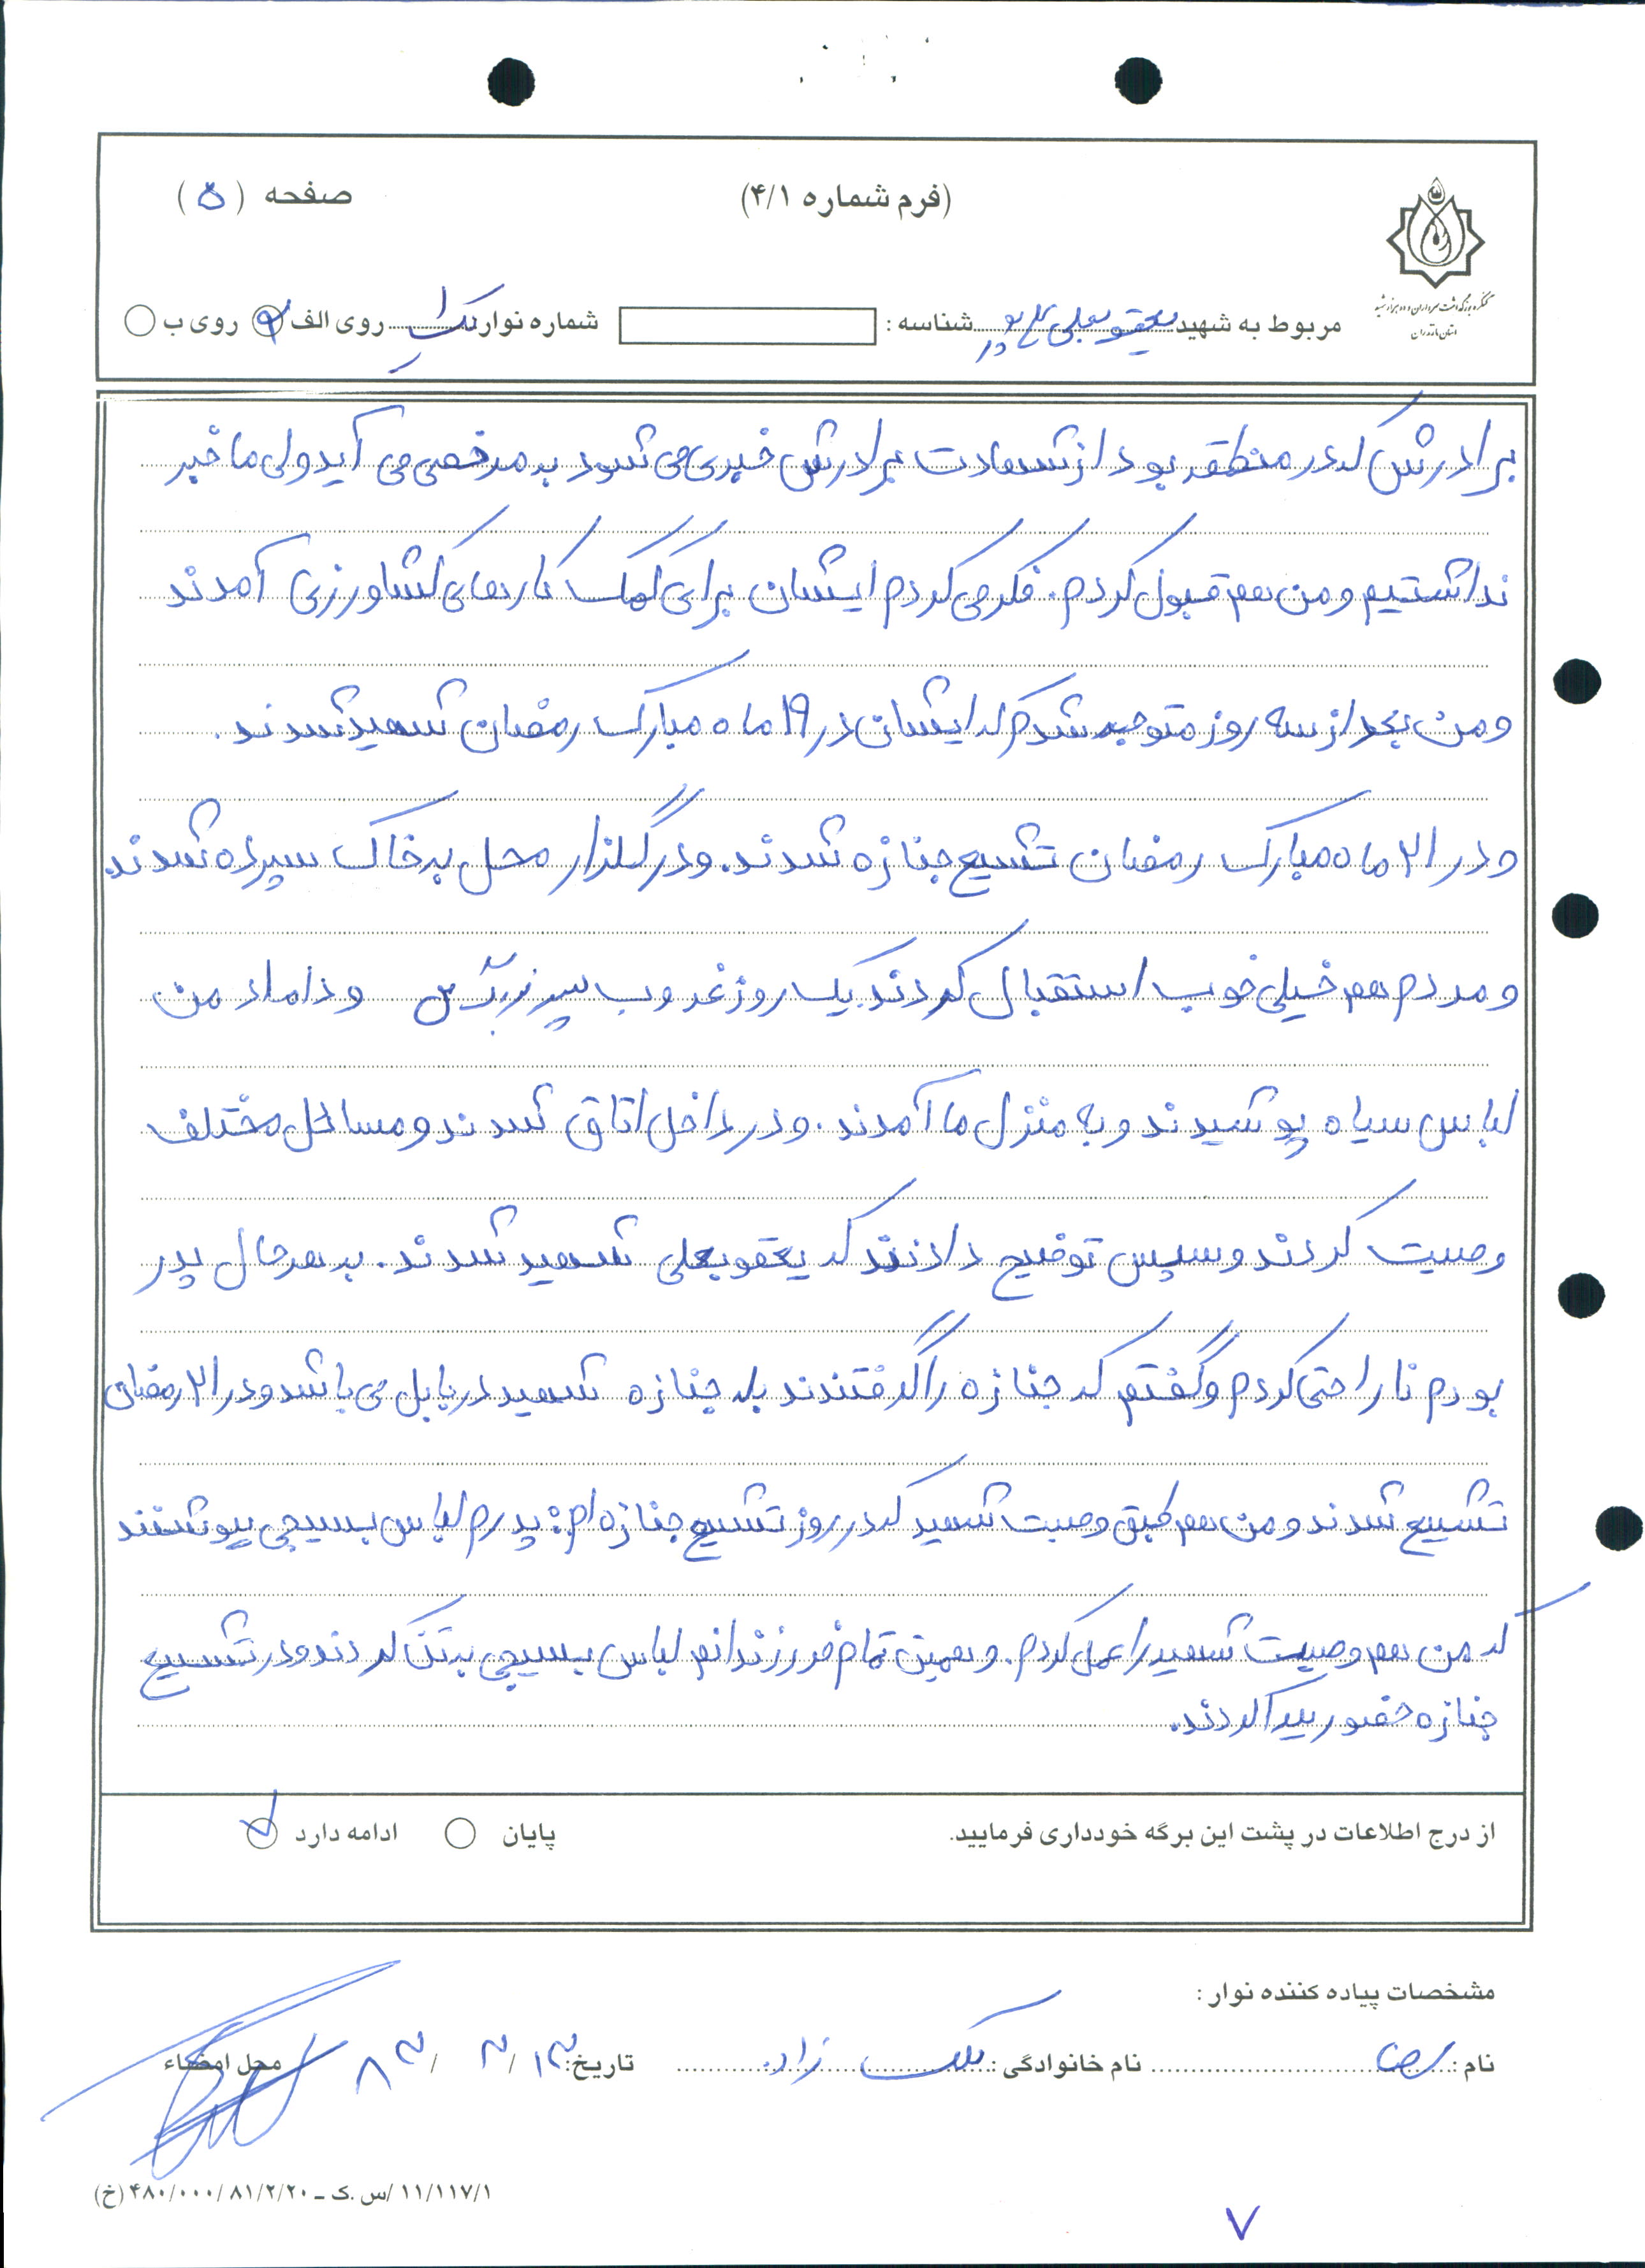 (فرم شماره ۴/۱)
صفحه (۵)
کنگره بزرگداشت سرداران و ده هزار شهید
استان مازندران
مربوط به شهید یعقوبعلی پور شناسه : شماره نوار تک ۱ روی الف روی ب
برادرش که در منطقه بود از شهادت برادرش خبری می شود به مرخصی می آید ولی ما خبر
نداشتیم و من هم قبول کردم. فکر می کردم ایشان برای کمک کارهای کشاورزی آمدند
و من بعد از سه روز متوجه شدم که ایشان در ۱۹ ماه مبارک رمضان شهید شدند.
و در ۲۱ ماه مبارک رمضان تشییع جنازه شدند. و در گلزار محل به خاک سپرده شدند.
و مردم هم خیلی خوب استقبال کردند یک روز غروب پسر و داماد من
لباس سیاه پوشیدند و به منزل ما آمدند. و در داخل اتاق شدند و مسائل مختلف
وصیت کردند و سپس توضیح دادند که یعقوبعلی شهید شدند. به هر حال پدر
بودم ناراحتی کردم و گفتم که جنازه را گرفتند بله جنازه شهید در بابل می باشد و در ۲۱ رمضان
تشییع شدند و من هم طبق وصیت شهید که در روز تشییع جنازه ام: پدرم لباس بسیجی بپوشند
که من هم وصیت شهید را عمل کردم. و همین تمام فرزندانم لباس بسیجی به تن کردند و در تشییع
جنازه حضور پیدا کردند.
از درج اطلاعات در پشت این برگه خودداری فرمایید. پایان ادامه دارد
مشخصات پیاده کننده نوار :
نام : رضا نام خانوادگی : ملک زاد تاریخ: ۱۳/ ۳/ ۸۳ محل امضاء
۱۱/۱۱۷/۱ /س.ک - ۸۱/۲/۲۰ /۴۸۰/۰۰۰ (خ)
۷